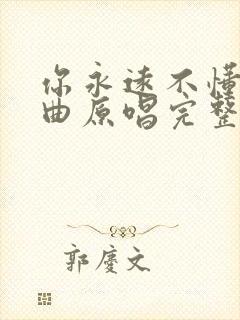 你永远不懂
曲原唱完整
郭庆文